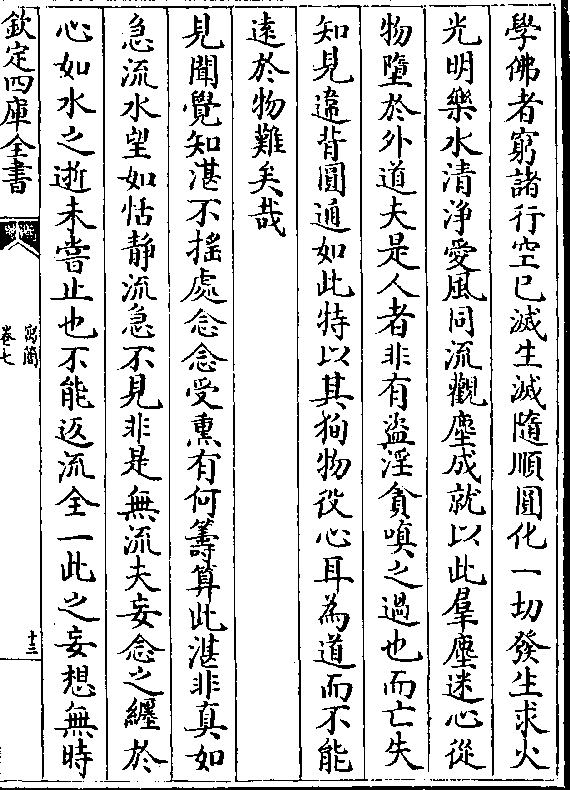 學佛者窮諸行空已滅生滅隨順圓化一切發生求火
光明樂水清淨愛風同流觀塵成就以此羣塵迷心從
物墮於外道夫是人者非有盜淫貪嗔之過也而亡失
知見違背圓通如此特以其狥物役心耳為道而不能
遠於物難矣哉
見聞覺知湛不揺處念念受熏有何籌算此湛非真如
急流水望如恬静流急不見非是無流夫妄念之纏於
心如水之逝未嘗止也不能返流全一此之妄想無時
欽定四庫全書
寓簡
卷七
十三